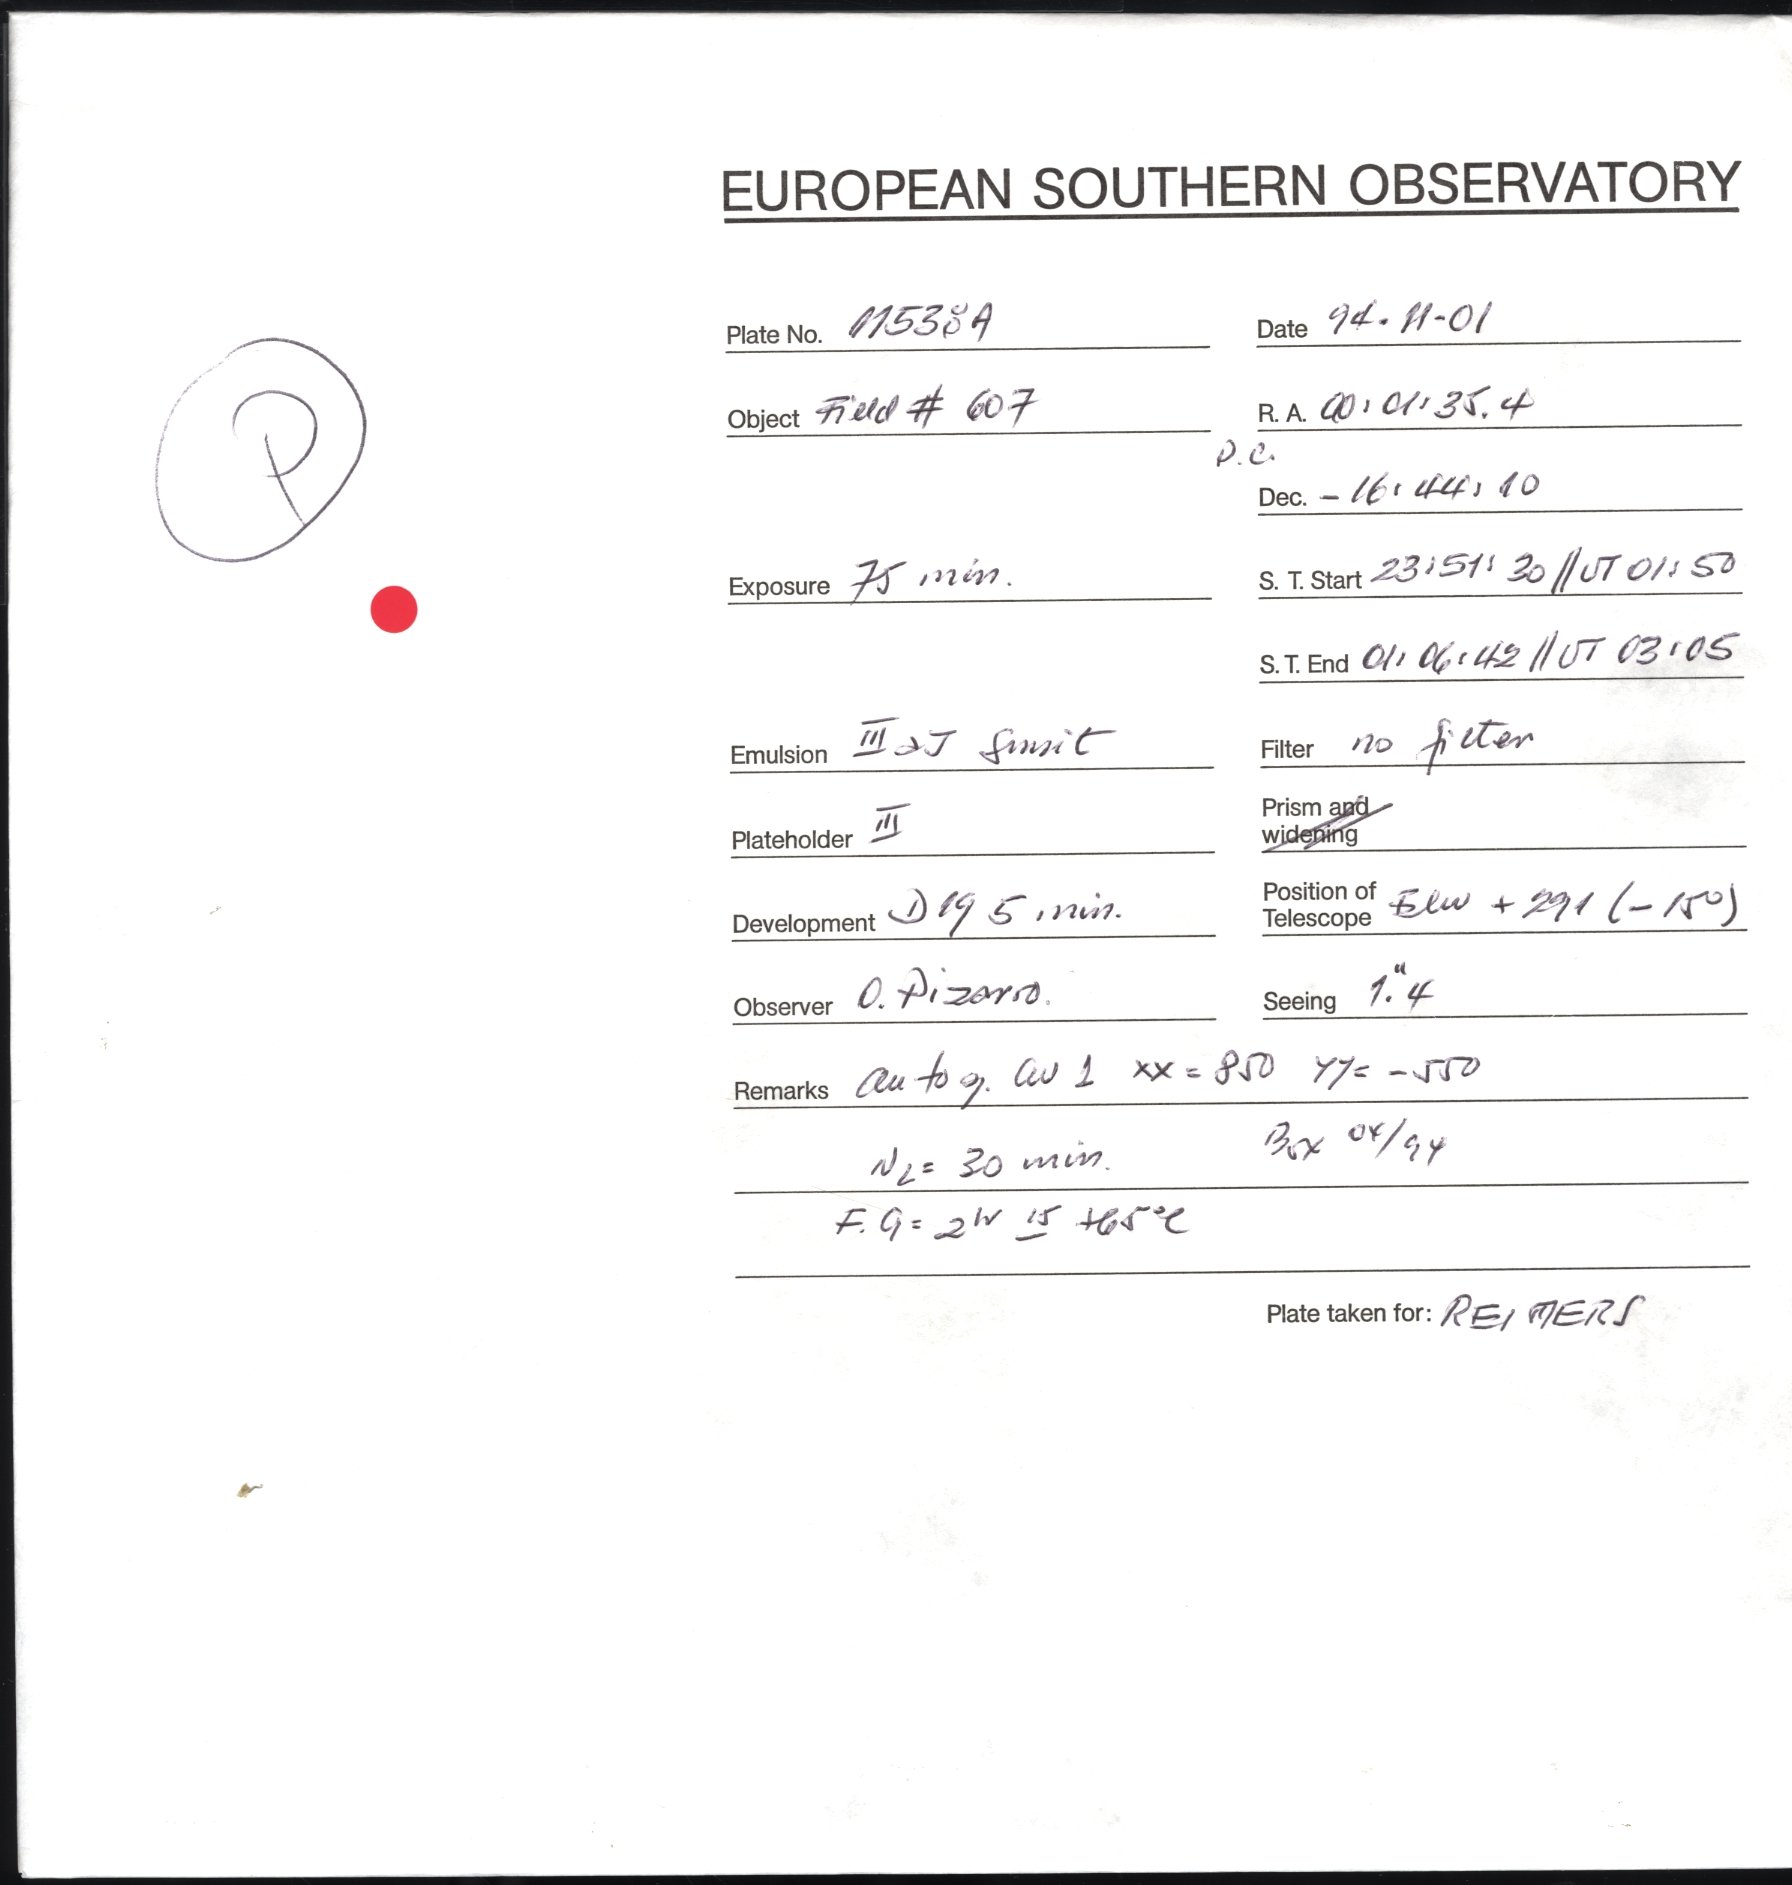 EUROPEAN SOUTHERN OBSERVATORY
Plate No. 11538A
Date 94-11-01
Object Field # 607
R. A. 00:01:35.4
P.C.
Dec. - 16:44:10
Exposure 75 min.
S. T. Start 23:51:30 // UT 01:50
S. T. End 01:06:42 // UT 03:05
Emulsion III aJ
Filter no filter
Plateholder III
Prism and widening
Development D19 5 min.
Position of Telescope + 291 (-15°)
Observer O. Pizarro.
Seeing 1."4
Remarks autog. 1 xx = 850 YY= -550
N2= 30 min.
Box 04/94
F.G= 2h 15 +65°C
Plate taken for: REIMERS
P